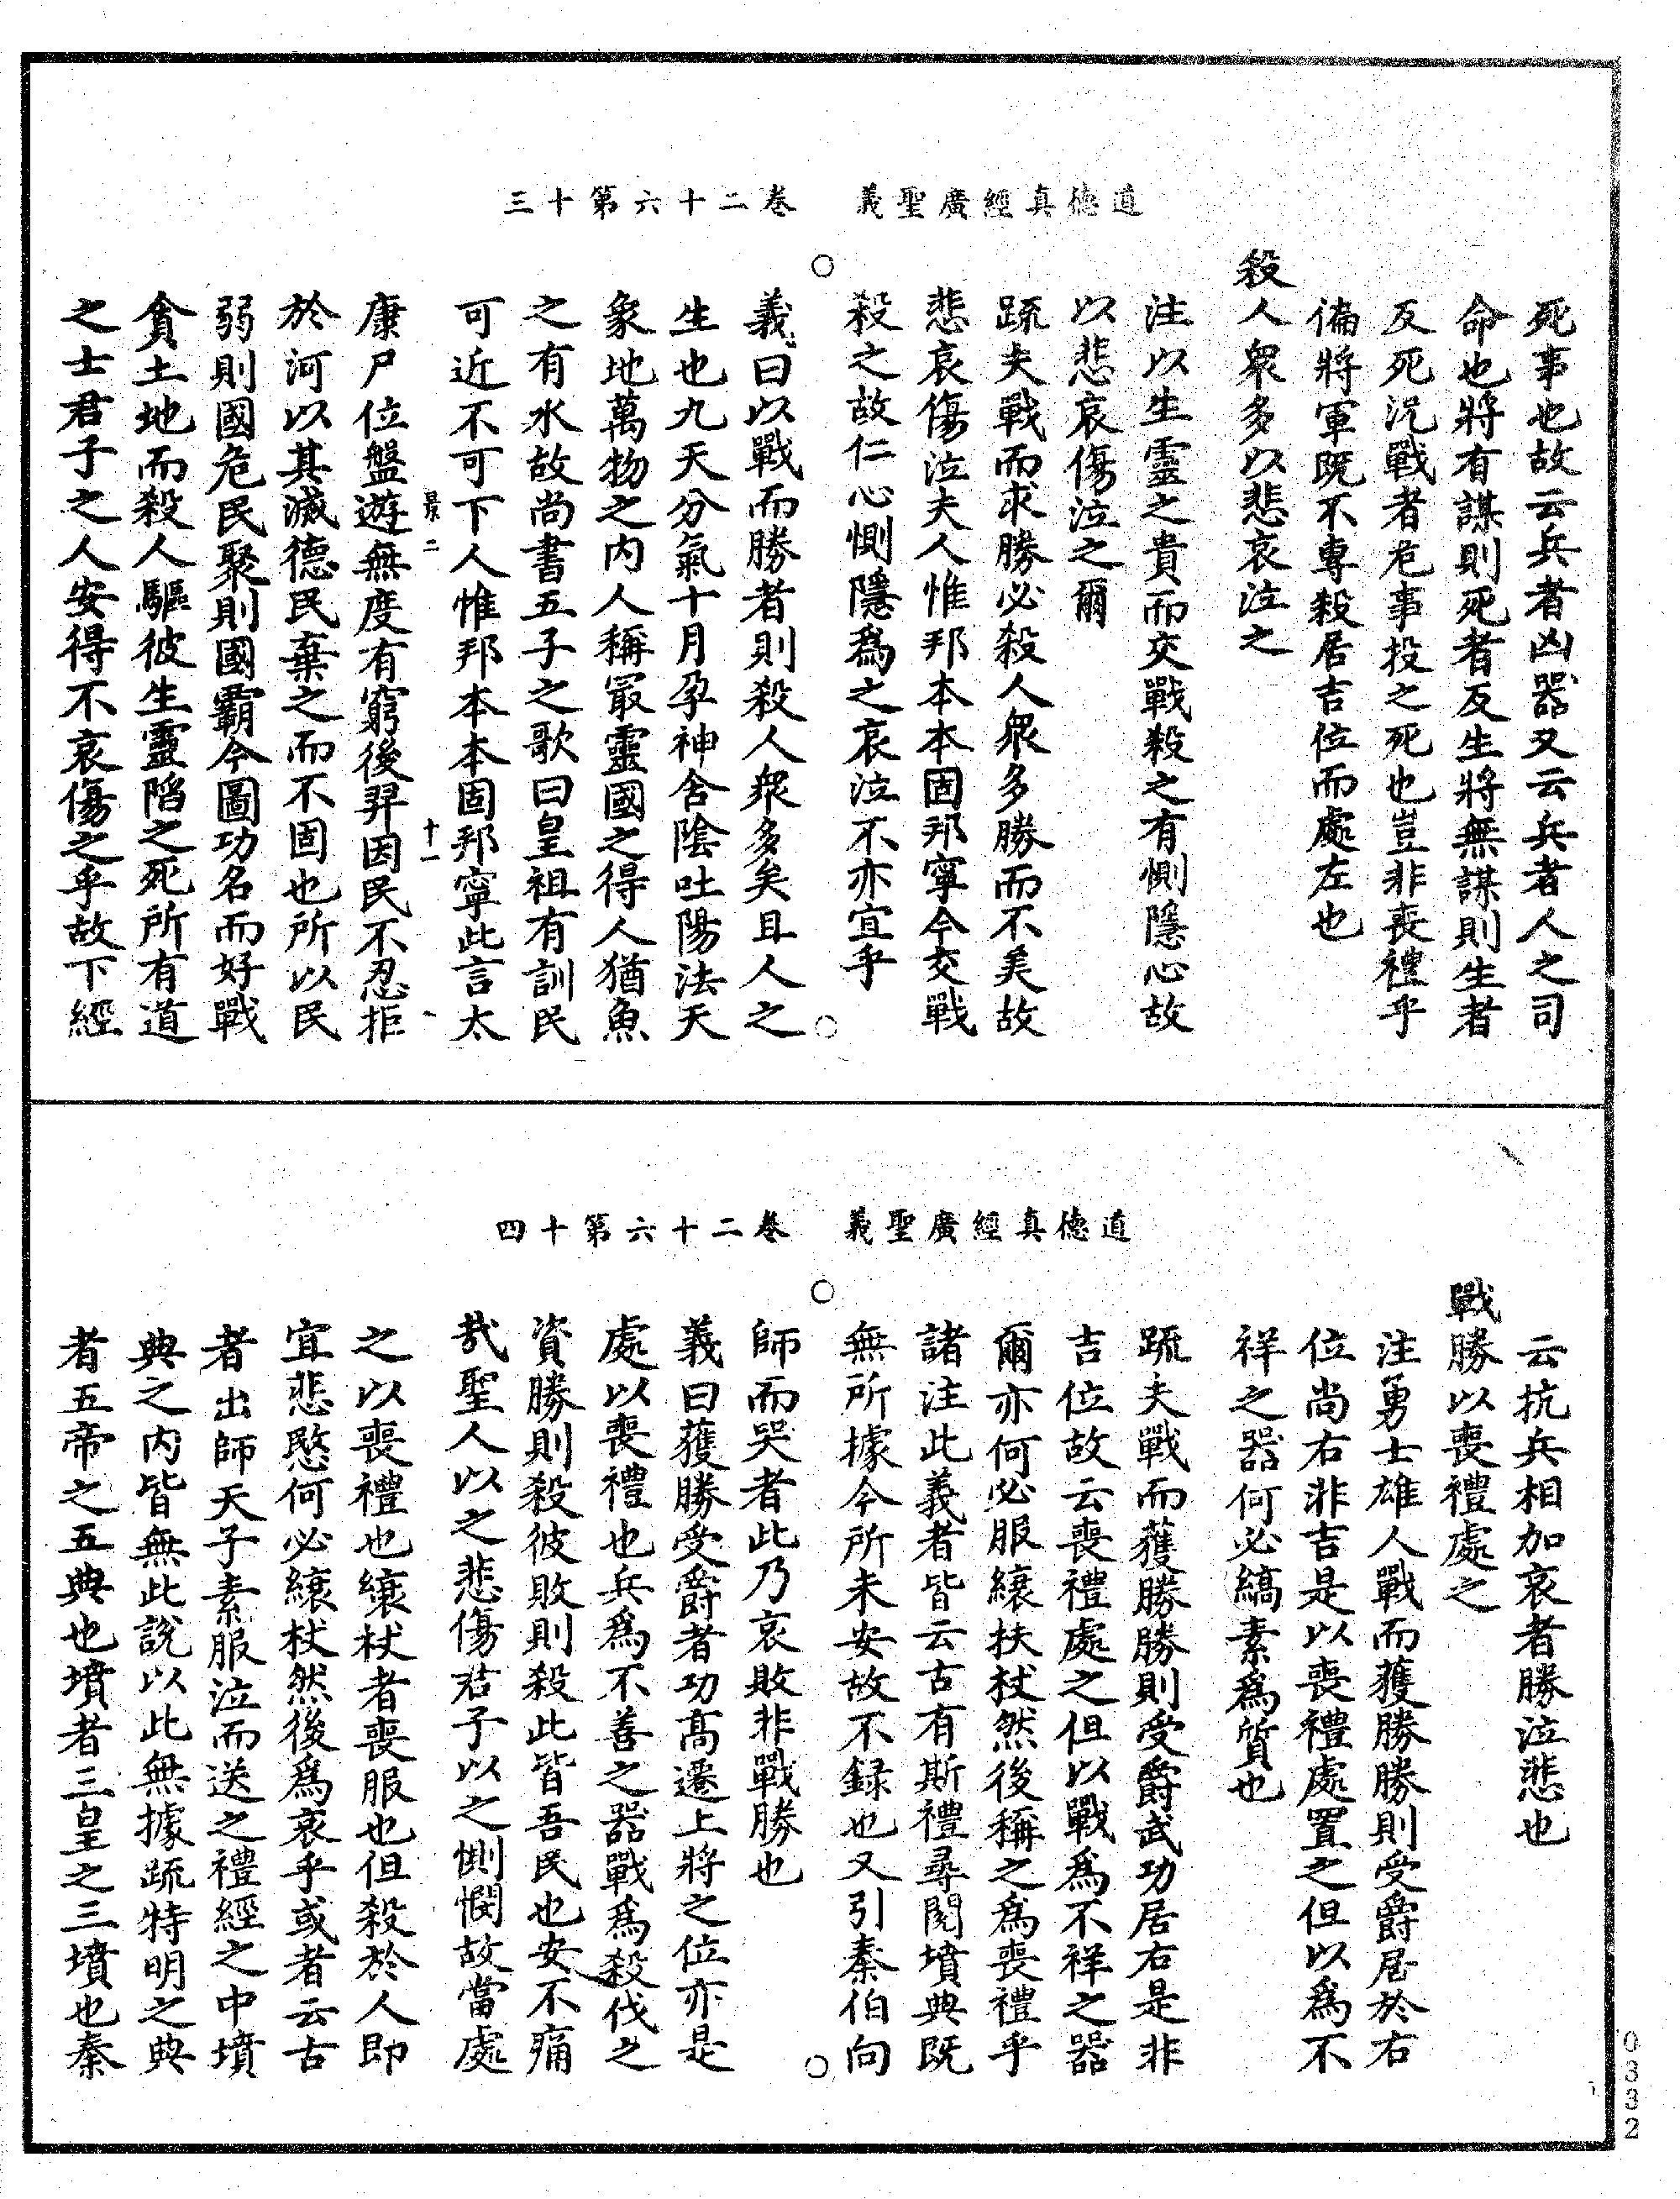 道德真經廣聖義　卷二十六第十三
死事也故云兵者凶器又云兵者人之司
命也將有謀則死者反生將無謀則生者
反死況戰者危事投之死也豈非喪禮乎
偏將軍既不專殺居吉位而處左也
殺人衆多以悲哀泣之
注以生靈之貴而交戰殺之有惻隱心故
以悲哀傷泣之爾
疏夫戰而求勝必殺人衆多勝而不美故
悲哀傷泣夫人惟邦本本固邦寧今交戰
殺之故仁心惻隱爲之哀泣不亦宜乎
義曰以戰而勝者則殺人衆多矣且人之
生也九天分氣十月孕神含陰吐陽法天
象地萬物之內人稱㝡靈國之得人猶魚
之有水故尚書五子之歌曰皇祖有訓民
可近不可下人惟邦本本固邦寧此言太
景二　十一
康尸位盤遊無度有窮後羿因民不忍拒
於河以其滅德民棄之而不固也所以民
弱則國危民聚則國霸今圖功名而好戰
貪土地而殺人驅彼生靈陷之死所有道
之士君子之人安得不哀傷之乎故下經
道德真經廣聖義　卷二十六第十四
云抗兵相加哀者勝泣悲也
戰勝以喪禮處之
注勇士雄人戰而獲勝勝則受爵居於右
位尚右非吉是以喪禮處置之但以爲不
祥之器何必縞素爲質也
疏夫戰而獲勝勝則受爵武功居右是非
吉位故云喪禮處之但以戰爲不祥之器
爾亦何必服縗扶杖然後稱之爲喪禮乎
諸注此義者皆云古有斯禮尋閱墳典既
無所據今所未安故不録也又引秦伯向
師而哭者此乃哀敗非戰勝也
義曰獲勝受爵者功高遷上將之位亦是
處以喪禮也兵爲不善之器戰爲殺伐之
資勝則殺彼敗則殺此皆吾民也安不痛
哉聖人以之悲傷君子以之惻憫故當處
之以喪禮也縗杖者喪服也但殺於人即
宜悲愍何必縗杖然後爲哀乎或者云古
者出師天子素服泣而送之禮經之中墳
典之內皆無此說以此無據疏特明之典
者五帝之五典也墳者三皇之三墳也秦
0332